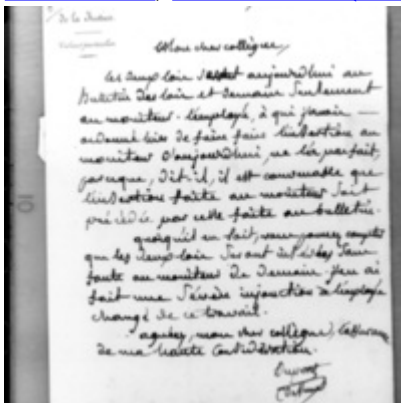 de la Justice
Mon cher collègue,
les deux lois sont aujourd'hui au
Bulletin des lois et demain seulement
au moniteur. l'employé, à qui j'avais
ordonné hier de faire faire l'insertion au
moniteur d'aujourd'hui, ne l'a pas fait,
parceque, dit-il, il est convenable que
l'insertion faite au moniteur soit
précédée par celle faite au bulletin.
quoiqu'il en soit, vous pouvez compter
que les deux lois seront insérées sans
faute au moniteur de demain. j'en ai
fait une sévère injonction à l'employé
chargé de ce travail.
agréez, mon cher collègue, l'assurance
de ma haute considération.